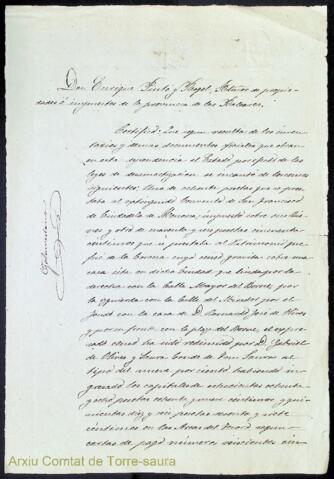 Don Enrique Pintó y Pagel, Notario de propie-
dades é impuestos de la provincia de las Baleares.
Certifico: Que segun resulta de los inven-
tarios y demás documentos oficiales que obran
en esta dependencia el Estado por efecto de las
leyes de desamortizacion se incautó de los censos
siguientes: Uno de ochenta pesetas que se pres-
taba al extinguido Convento de San Francisco
de Ciudadela de Menorca, impuesto sobre
y otro de noventa y seis pesetas cincuenta
centimos que se prestaba al Patrimonio que
fué de la Corona cuyo censo gravita sobre una
casa sita en dicha Ciudad que linda por la
derecha con la Calle Mayor del Borne, por
la izquierda con la Calle del Mirador por el
fondo con la casa de D. Bernardo José de Olives
y por su frente con la plaza del Borne, el expresado
censo ha sido redimido por D. Gabriel
de Olives y Saura Conde de Torre Saura al
tipo del nueve por ciento habiendo in-
gresado los capitales de setecientas ochenta
y ocho pesetas ochenta y nueve centimos, y qui-
nientas diez y seis pesetas sesenta y siete
centimos en las Arcas del Tesoro segun
cartas de pago números seiscientos cin-
Arxiu Comtat de Torre-saura